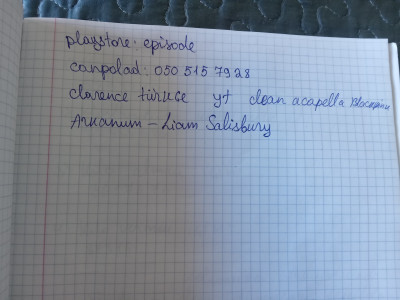 playstore: episode
canpolad: 050 515 79 28
clarence türkçe yt clean acapella
Arkanum - Liam Salisbury